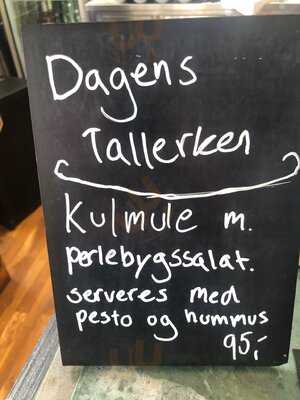 Dagens
Tallerken
Kulmule m.
perlebygssalat.
serveres med
pesto og hummus
95,-